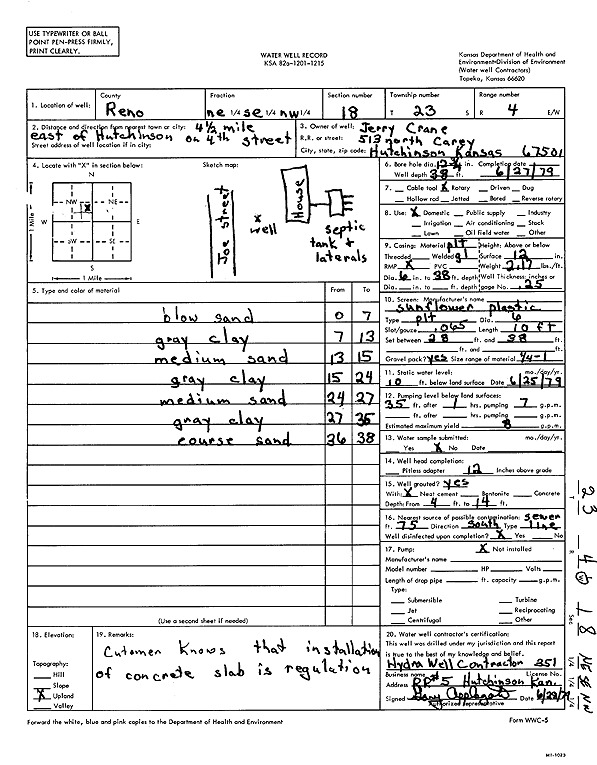 USE TYPEWRITER OR BALL
POINT PEN-PRESS FIRMLY,
PRINT CLEARLY.
WATER WELL RECORD
KSA 82a-1201-1215
Kansas Department of Health and
Environment-Division of Environment
(Water well Contractors)
Topeka, Kansas 66620
1. Location of well: County Reno Fraction ne 1/4 se 1/4 nw 1/4 Section number 18 Township number T 23 S Range number R 4 E/W
2. Distance and direction from nearest town or city: 4 1/2 mile
east of Hutchinson on 4th street
Street address of well location if in city:
3. Owner of well: Jerry Crane
R.R. or street: 513 north Carey
City, state, zip code: Hutchinson Kansas 67501
4. Locate with "X" in section below: Sketch map:
N
NW NE
W E
SW SE
S
1 Mile
1 Mile
X
Joe street
x
well
House
septic
tank +
laterals
5. Type and color of material From To
blow sand 0 7
gray clay 7 13
medium sand 13 15
gray clay 15 24
medium sand 24 27
gray clay 27 36
course sand 36 38
(Use a second sheet if needed)
6. Bore hole dia. in. Completion date
Well depth 38 ft. 6/27/79
7. Cable tool X Rotary Driven Dug
Hollow rod Jetted Bored Reverse rotary
8. Use: X Domestic Public supply Industry
Irrigation Air conditioning Stock
Lawn Oil field water Other
9. Casing: Material plt Height: Above or below
Threaded Welded gl Surface 12 in.
RMP X PVC Weight 2.17 lbs./ft.
Dia. 6 in. to 38 ft. depth Wall Thickness: inches or
Dia. in. to ft. depth gage No. .25
10. Screen: Manufacturer's name
sunflower plastic
Type plt Dia. 6
Slot/gauze .065 Length 10 ft
Set between 28 ft. and 38 ft.
ft. and ft.
Gravel pack? yes Size range of material 1/4-1
11. Static water level: mo./day/yr.
10 ft. below land surface Date 6/25/79
12. Pumping level below land surfaces:
35 ft. after 1 hrs. pumping 7 g.p.m.
ft. after hrs. pumping g.p.m.
Estimated maximum yield 8 g.p.m.
13. Water sample submitted: mo./day/yr.
Yes X No Date
14. Well head completion:
Pitless adapter 12 Inches above grade
15. Well grouted? yes
With: X Neat cement Bentonite Concrete
Depth: From 4 ft. to 14 ft.
16. Nearest source of possible contamination: sewer
ft. 75 Direction South Type line
Well disinfected upon completion? X Yes No
17. Pump: X Not installed
Manufacturer's name
Model number HP Volts
Length of drop pipe ft. capacity g.p.m.
Type:
Submersible Turbine
Jet Reciprocating
Centrifugal Other
18. Elevation:
Topography:
Hill
Slope
X Upland
Valley
19. Remarks:
Cutomer knows that installation
of concrete slab is regulation
20. Water well contractor's certification:
This well was drilled under my jurisdiction and this report
is true to the best of my knowledge and belief.
Hydra Well Contractor 351
Business name License No.
Address RR#5 Hutchinson Kan.
Signed Date 6/28/79
Authorized representative
Forward the white, blue and pink copies to the Department of Health and Environment
Form WWC-5
T 23 R 4 W Sec 18
1/4 1/4 1/4 NE SE NW